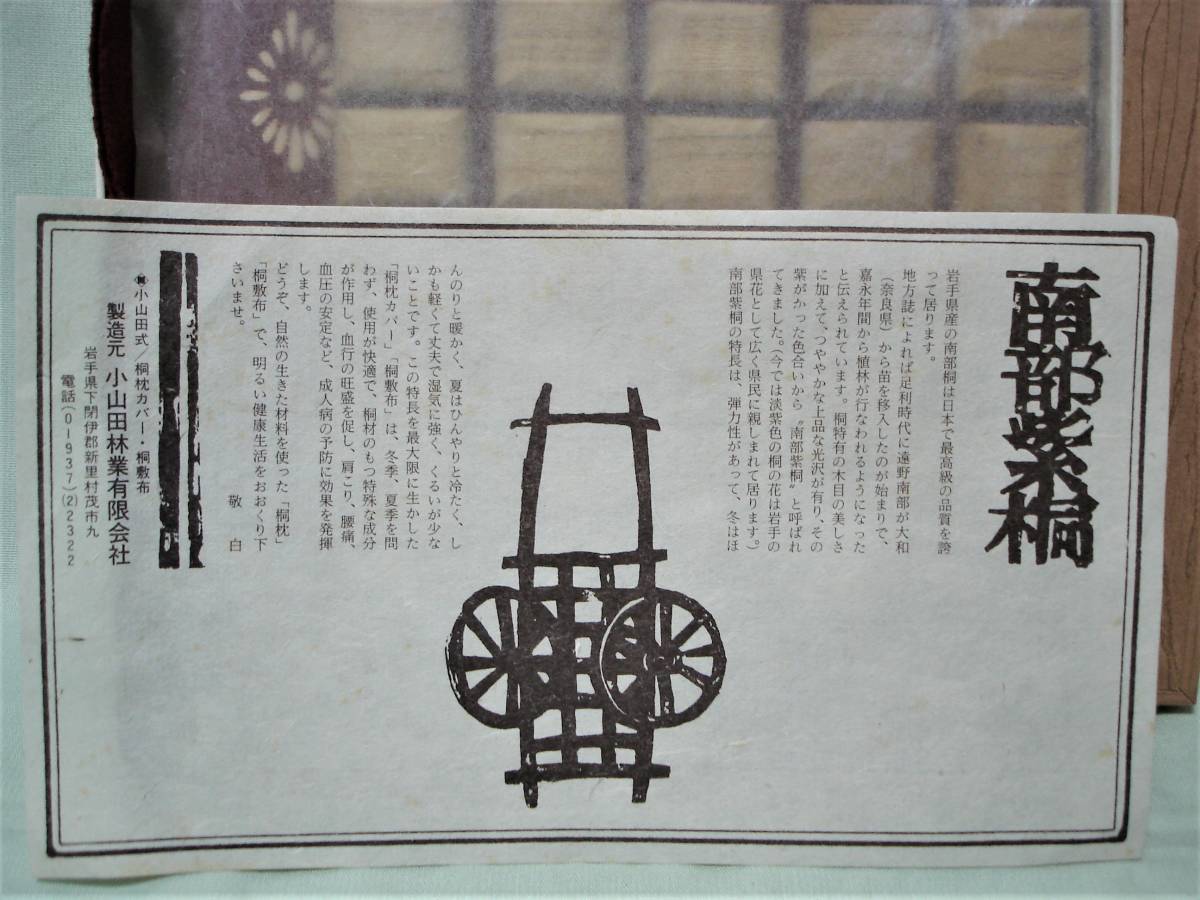 南部紫桐
岩手県産の南部桐は日本で最高級の品質を誇
って居ります。
地方誌によれば足利時代に遠野南部が大和
（奈良県）から苗を移入したのが始まりで、
嘉永年間から植林が行なわれるようになった
と伝えられています。桐特有の木目の美しさ
に加えて、つややかな上品な光沢が有り、その
紫がかった色合いから〝南部紫桐〟と呼ばれ
てきました。（今では淡紫色の桐の花は岩手の
県花として広く県民に親しまれて居ります。）
南部紫桐の特長は、弾力性があって、冬はほ
んのりと暖かく、夏はひんやりと冷たく、し
かも軽くて丈夫で湿気に強く、くるいが少な
いことです。この特長を最大限に生かした
「桐枕カバー」「桐敷布」は、冬季、夏季を問
わず、使用が快適で、桐材のもつ特殊な成分
が作用し、血行の旺盛を促し、肩こり、腰痛、
血圧の安定など、成人病の予防に効果を発揮
します。
どうぞ、自然の生きた材料を使った「桐枕」
「桐敷布」で、明るい健康生活をおおくり下
さいませ。
敬白
小山田式／桐枕カバー・桐敷布
製造元 小山田林業有限会社
岩手県下閉伊郡新里村茂市九
電話（０１９３７）（２）２３２２